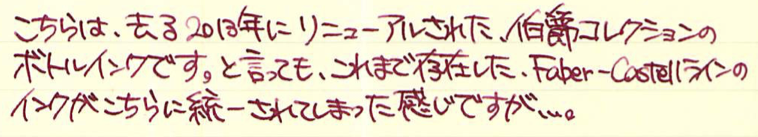 こちらは、去る2013年にリニューアルされた、伯爵コレクションの
ボトルインクです。と言っても、これまで存在した、Faber-Castellラインの
インクがこちらに統一されてしまった感じですが…。